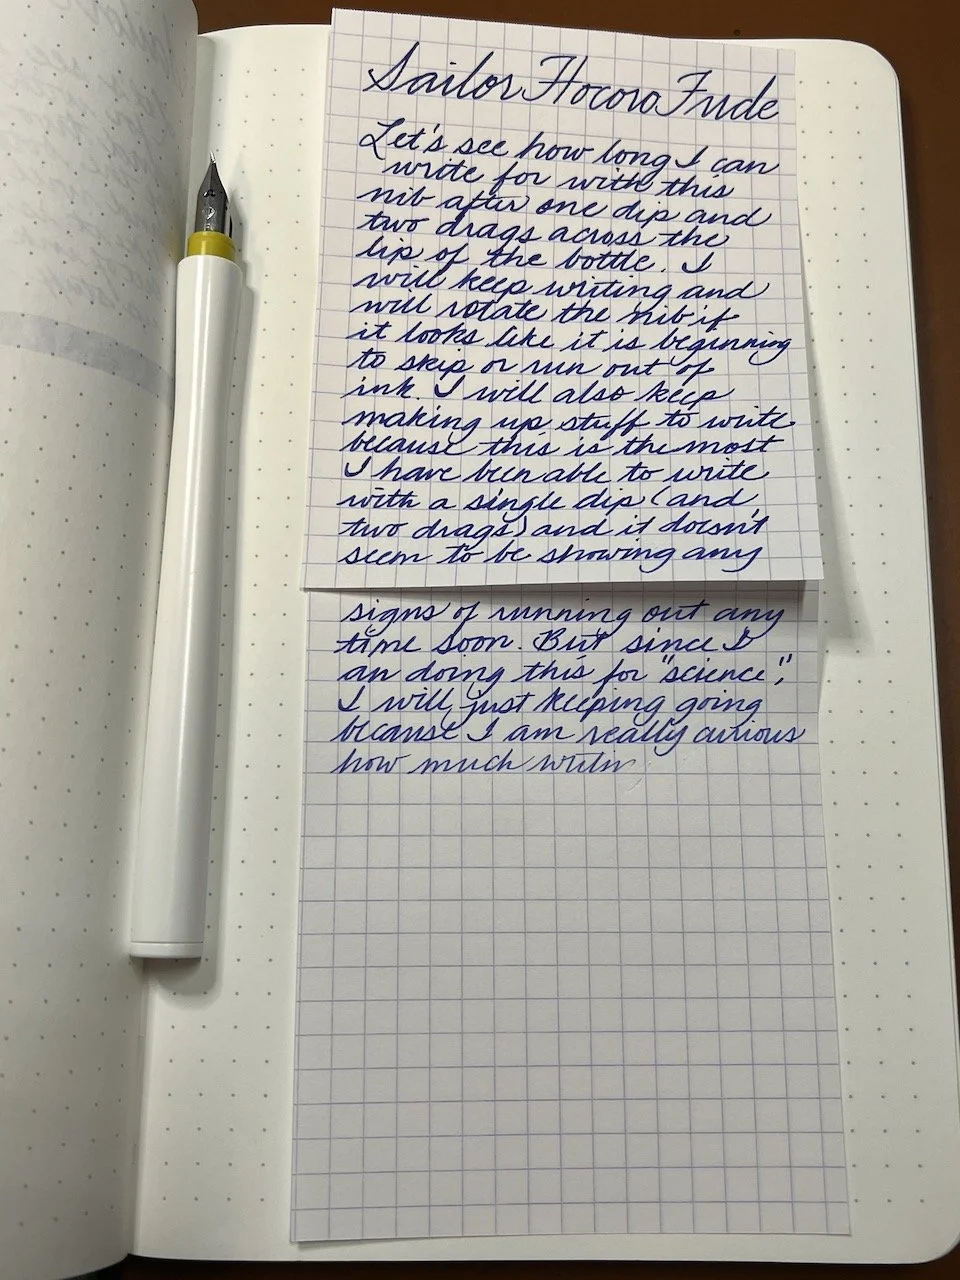 Sailor Hocoro Fude
Let's see how long I can
write for with this
nib after one dip and
two drags across the
lip of the bottle. I
will keep writing and
will rotate the nib if
it looks like it is beginning
to skip or run out of
ink. I will also keep
making up stuff to write
because this is the most
I have been able to write
with a single dip (and
two drags) and it doesn't
seem to be showing any
signs of running out any
time soon. But since I
an doing this for "science",
I will just keeping going
because I am really curious
how much writin